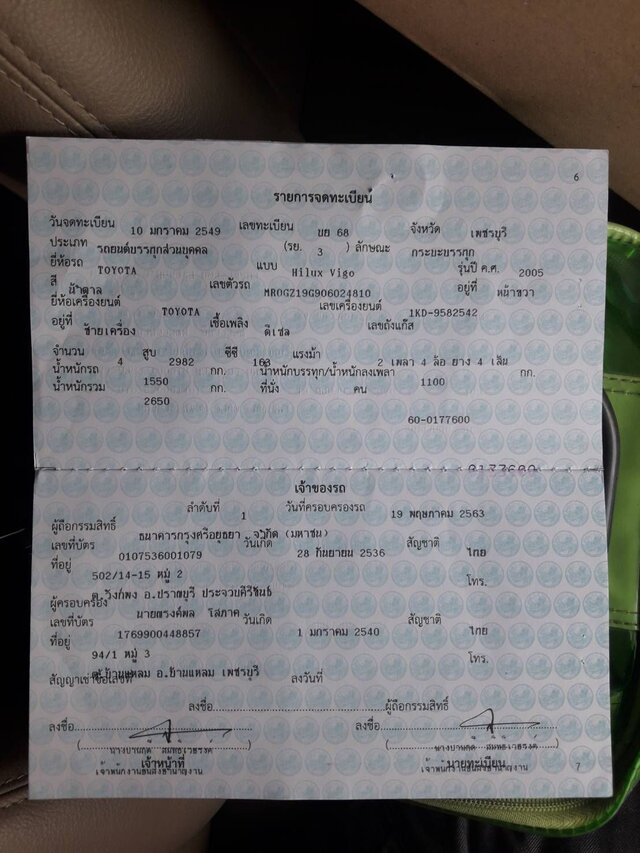 6
รายการจดทะเบียน
วันจดทะเบียน 10 มกราคม 2549 เลขทะเบียน บย 68 จังหวัด เพชรบุรี
ประเภท รถยนต์บรรทุกส่วนบุคคล (รย. 3 ) ลักษณะ กระบะบรรทุก
ยี่ห้อรถ TOYOTA แบบ Hilux Vigo รุ่นปี ค.ศ. 2005
สี น้ำตาล เลขตัวรถ MR0GZ19G906024810 อยู่ที่ หน้าขวา
ยี่ห้อเครื่องยนต์ TOYOTA เลขเครื่องยนต์ 1KD-9582542
อยู่ที่ ซ้ายเครื่อง เชื้อเพลิง ดีเซล เลขถังแก๊ส
จำนวน 4 สูบ 2982 ซีซี 163 แรงม้า 2 เพลา 4 ล้อ ยาง 4 เส้น
น้ำหนักรถ 1550 กก. น้ำหนักบรรทุก/น้ำหนักลงเพลา 1100 กก.
น้ำหนักรวม 2650 กก. ที่นั่ง คน
60-0177600
0177600
เจ้าของรถ
ลำดับที่ 1 วันที่ครอบครองรถ 19 พฤษภาคม 2563
ผู้ถือกรรมสิทธิ์ ธนาคารกรุงศรีอยุธยา จำกัด (มหาชน)
เลขที่บัตร 0107536001079 วันเกิด 28 กันยายน 2536 สัญชาติ ไทย
ที่อยู่ 502/14-15 หมู่ 2 โทร.
ต.วังก์พง อ.ปราณบุรี ประจวบคีรีขันธ์
ผู้ครอบครอง นายณรงค์พล โสภาค
เลขที่บัตร 1769900448857 วันเกิด 1 มกราคม 2540 สัญชาติ ไทย
ที่อยู่ 94/1 หมู่ 3 โทร.
ต.บ้านแหลม อ.บ้านแหลม เพชรบุรี
สัญญาเช่าซื้อเลขที่ ลงวันที่
ลงชื่อ ผู้ถือกรรมสิทธิ์
ลงชื่อ ลงชื่อ
เจ้าหน้าที่ นายทะเบียน
เจ้าพนักงานขนส่งชำนาญงาน เจ้าพนักงานขนส่งชำนาญงาน
7